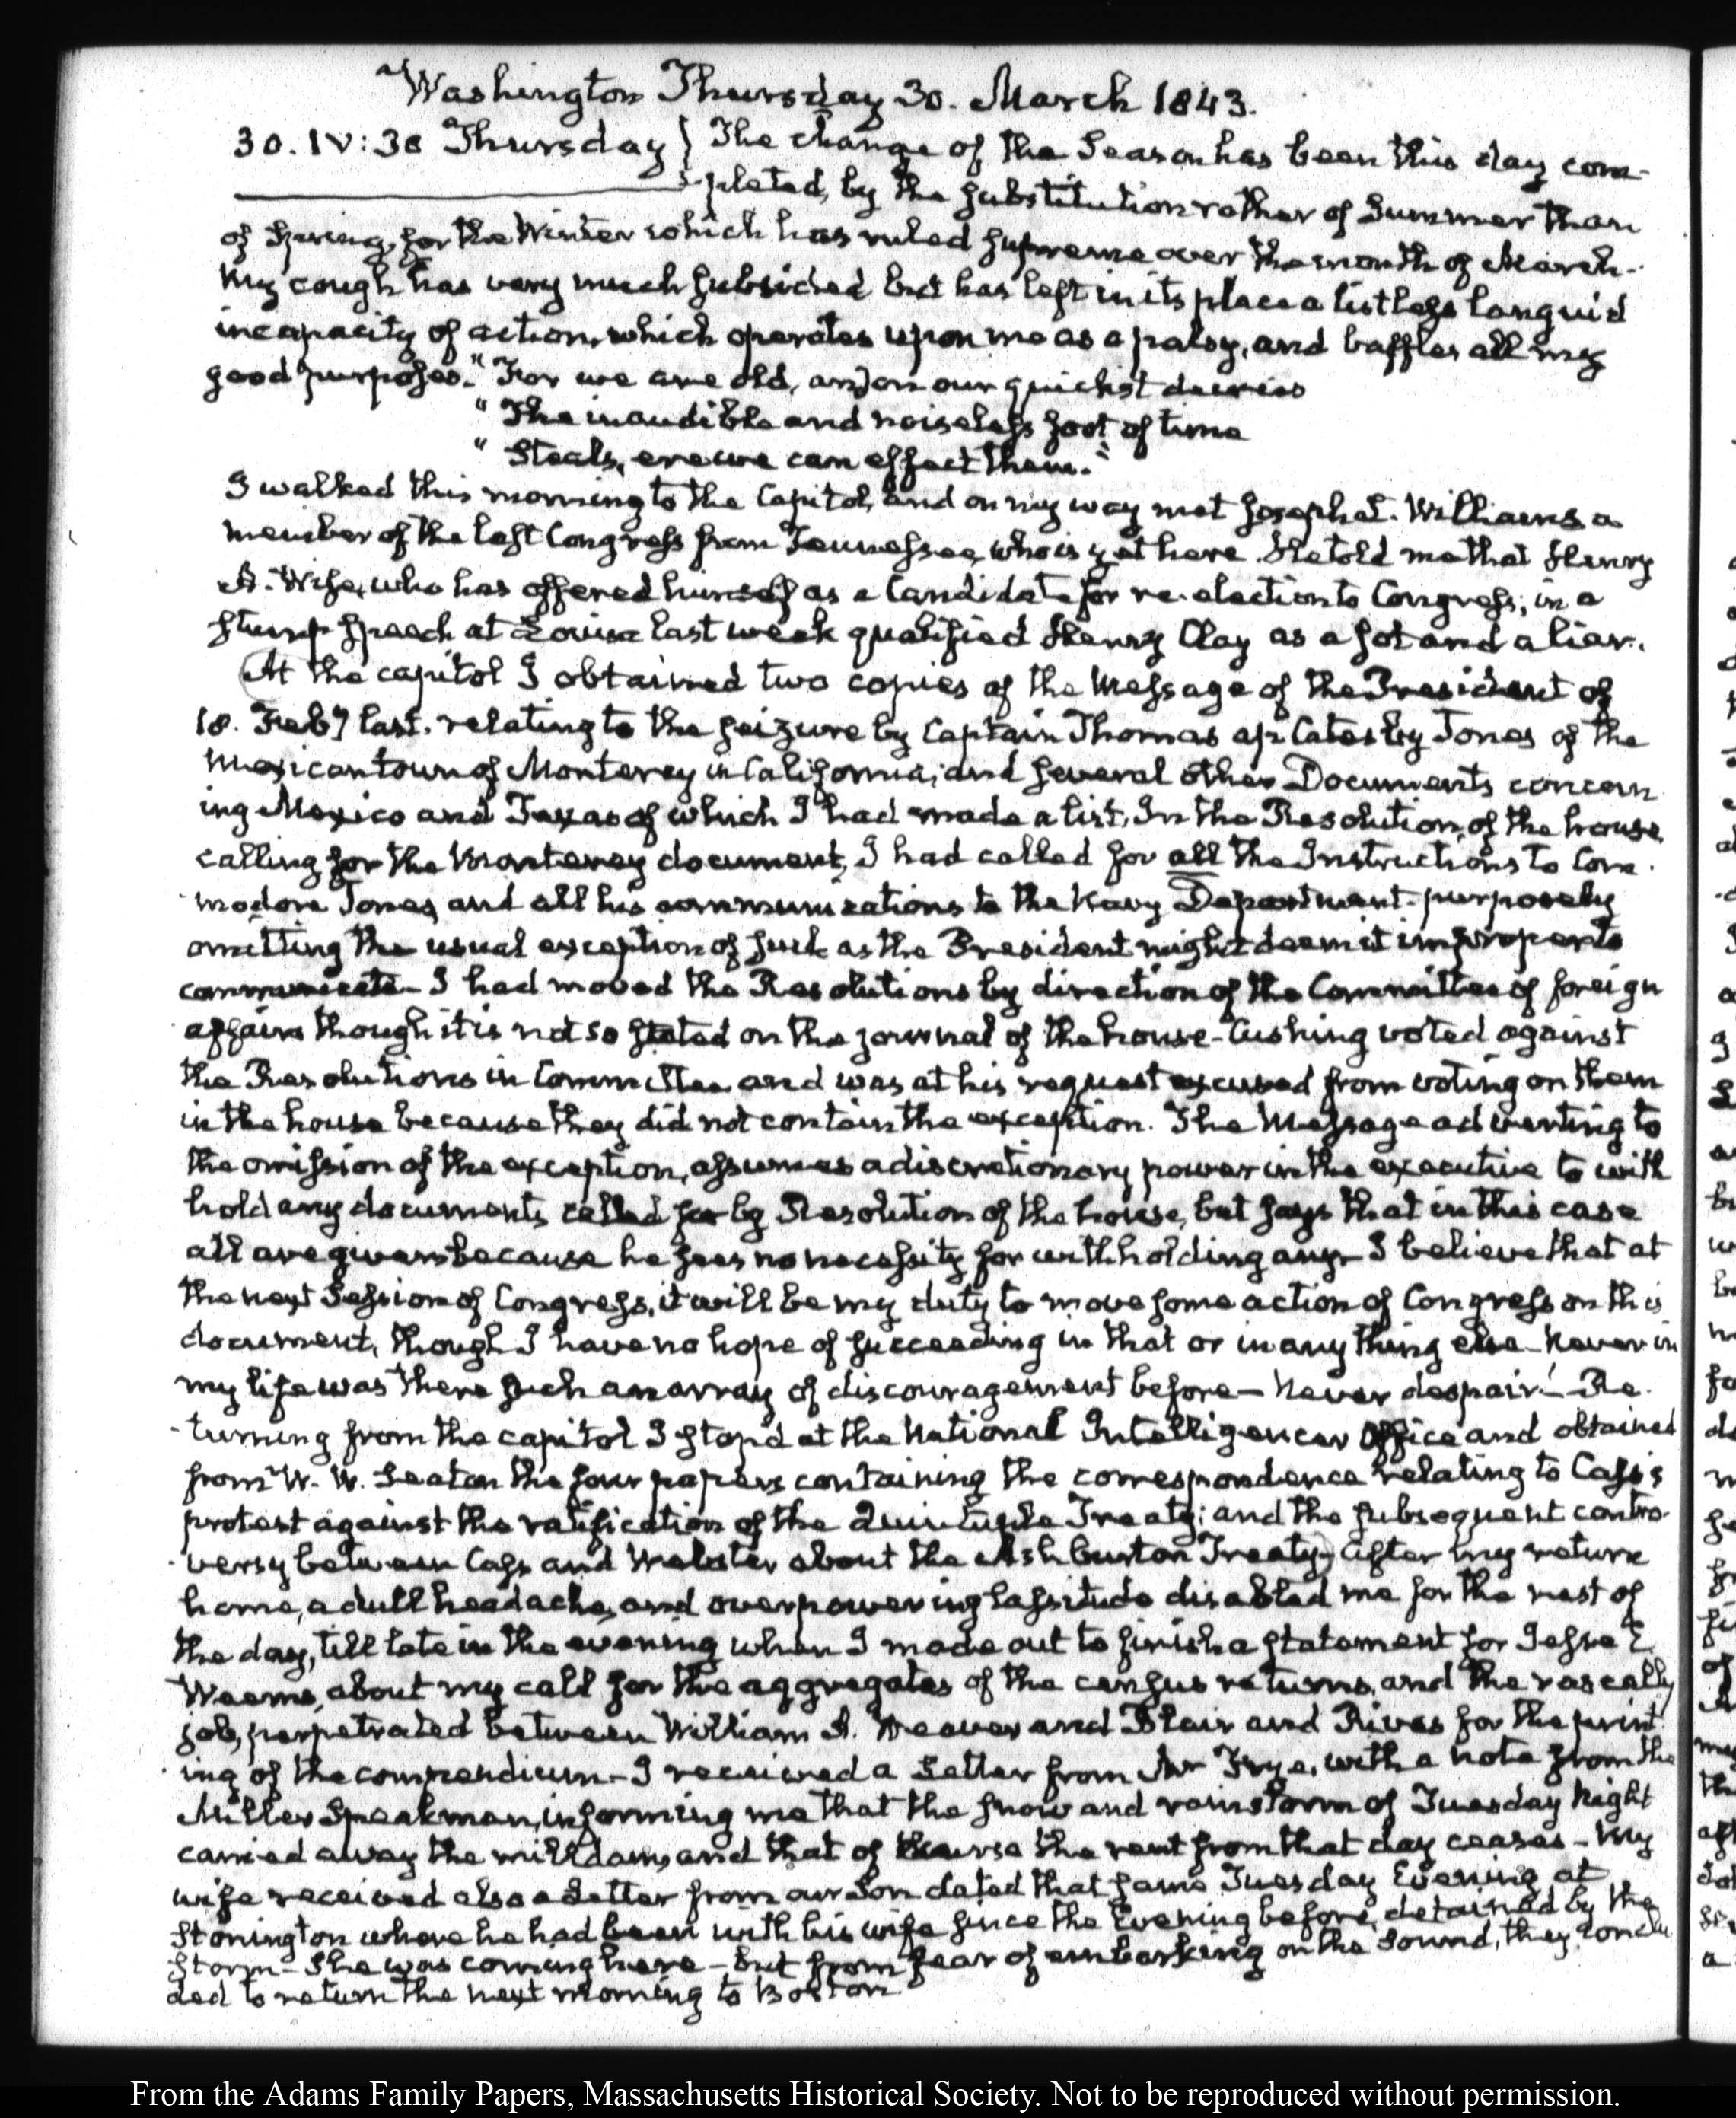 Washington Thursday 30. March 1843.
30. IV:30 Thursday} The change of the Season has been this day com-
-pleted, by the substitution rather of Summer than
of Spring, for the Winter which has ruled supreme over the month of March.
My cough has very much subsided but has left in its place a listless languid
incapacity of action, which operates upon me as a palsy, and baffles all my
good purposes. "For we are old, and on our quickest decrees
"The inaudible and noiseless foot of time
"Steals, ere we can effect them."
I walked this morning to the Capitol, and on my way met Joseph L. Williams a
member of the last Congress from Tennessee, who is yet here. He told me that Henry
A. Wise, who has offered himself as a Candidate for re-election to Congress, in a
stump speech at Louisa last week qualified Henry Clay as a sot and a liar.
At the capitol I obtained two copies of the Message of the President of
18. Feby last. relating to the seizure by Captain Thomas ap Catesby Jones of the
Mexican town of Monterey in California; and several other Documents concern
ing Mexico and Texas of which I had made a list. In the Resolution of the house
calling for the Monterey document, I had called for all the Instructions to Com-
modore Jones, and all his communications to the Navy Department- purposely
omitting the usual exception of such as the President might deem it improper to
communicate- I had moved the Resolutions by direction of the Committee of foreign
affairs though it is not so stated on the journal of the house- Cushing voted against
the Resolutions in Committee and was at his request excused from voting on them
in the house because they did not contain the exception. The Message adverting to
the omission of the exception, assumes a discretionary power in the executive to with
hold any documents called for by Resolution of the house, but says that in this case
all are given because he sees no necessity for withholding any- I believe that at
the next Session of Congress, it will be my duty to move some action of Congress on this
document, though I have no hope of succeeding in that or in any thing else- Never in
my life was there such an array of discouragement before- Never despair!- Re-
-turning from the capitol I stop'd at the National Intelligencer Office and obtained
from W. W. Seaton the four papers containing the correspondence relating to Cass's
protest against the ratification of the Quintuple Treaty; and the subsequent contro-
-versy between Cass and Webster about the Ashburton Treaty- After my return
home, a dull headache, and overpowering lassitude disabled me for the rest of
the day, till late in the evening when I made out to finish a statement for Jesse E
Weems, about my call for the aggregates of the census returns, and the rascally
job, perpetrated between William A. Weaver and Blair and Rives for the print-
-ing of the compendium- I received a Letter from Mr Frye, with a note from the
Miller Speakman, informing me that the snow and rainstorm of Tuesday Night
carried away the milldam, and that of course the rent from that day ceases- My
wife received also a Letter from our Son dated that same Tuesday Evening at
Stonington where he had been with his wife since the Evening before, detained by the
storm- She was coming here- But from fear of embarking on the Sound, they conclu
ded to return the next morning to Boston
From the Adams Family Papers, Massachusetts Historical Society. Not to be reproduced without permission.